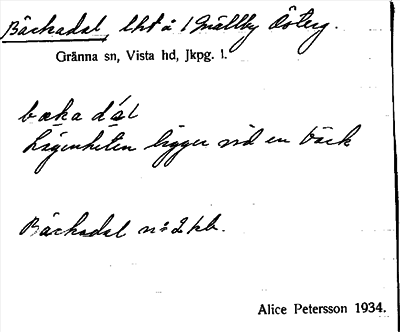 Bäckadal, lht å 1 Mällby Österg.
Gränna sn, Vista hd, Jkpg. l.
bækadal
Lägenheten ligger vid en bäck
Bäckadal nö 2 kb.
Alice Petersson 1934.